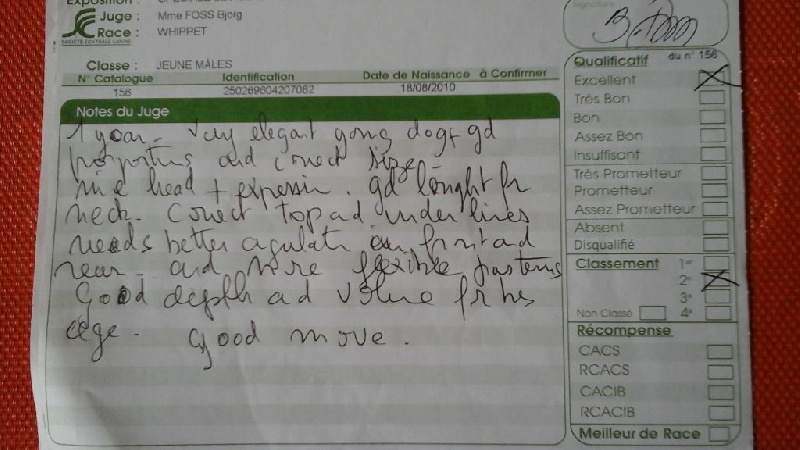 Juge : Mme FOSS Bjorg
Race : WHIPPET
SOCIÉTÉ CENTRALE CANINE
Classe : JEUNE MÂLES
N° Catalogue Identification Date de Naissance à Confirmer
156 250269604207082 18/08/2010
Notes du Juge
1 year. Very elegant gong dog + gd
and correct size
nice head + expression. gd lenght fr
neck. Correct top ad underlines
needs better agulatn front ad
rear. and more flexible pasterns
Good depth ad volume fr his
age. Good move.
Signature
Qualificatif du n° 156
Excellent
Très Bon
Bon
Assez Bon
Insuffisant
Très Prometteur
Prometteur
Assez Prometteur
Absent
Disqualifié
Classement 1er
2e
3e
Non Classé 4e
Récompense
CACS
RCACS
CACIB
RCACIB
Meilleur de Race